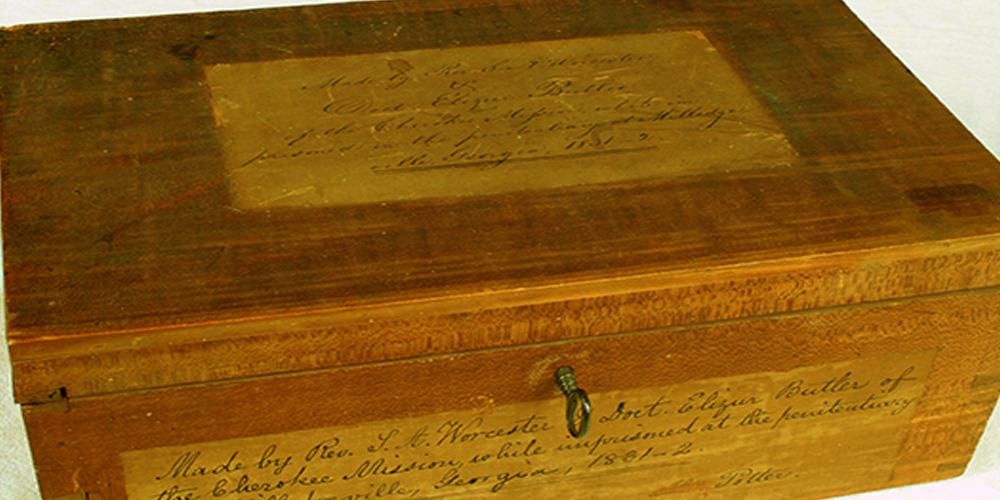 Made by Rev. S. A. Worcester
&
Doct. Elizur Butler
of the Cherokee Mission, while im-
prisoned in the penitentiary at Milledge-
ville, Georgia, 1831-2.
Made by Rev. S. A. Worcester & Doct. Elizur Butler of
the Cherokee Mission, while imprisoned at the penitentiary
Milledgeville, Georgia, 1831-2.
Potter.